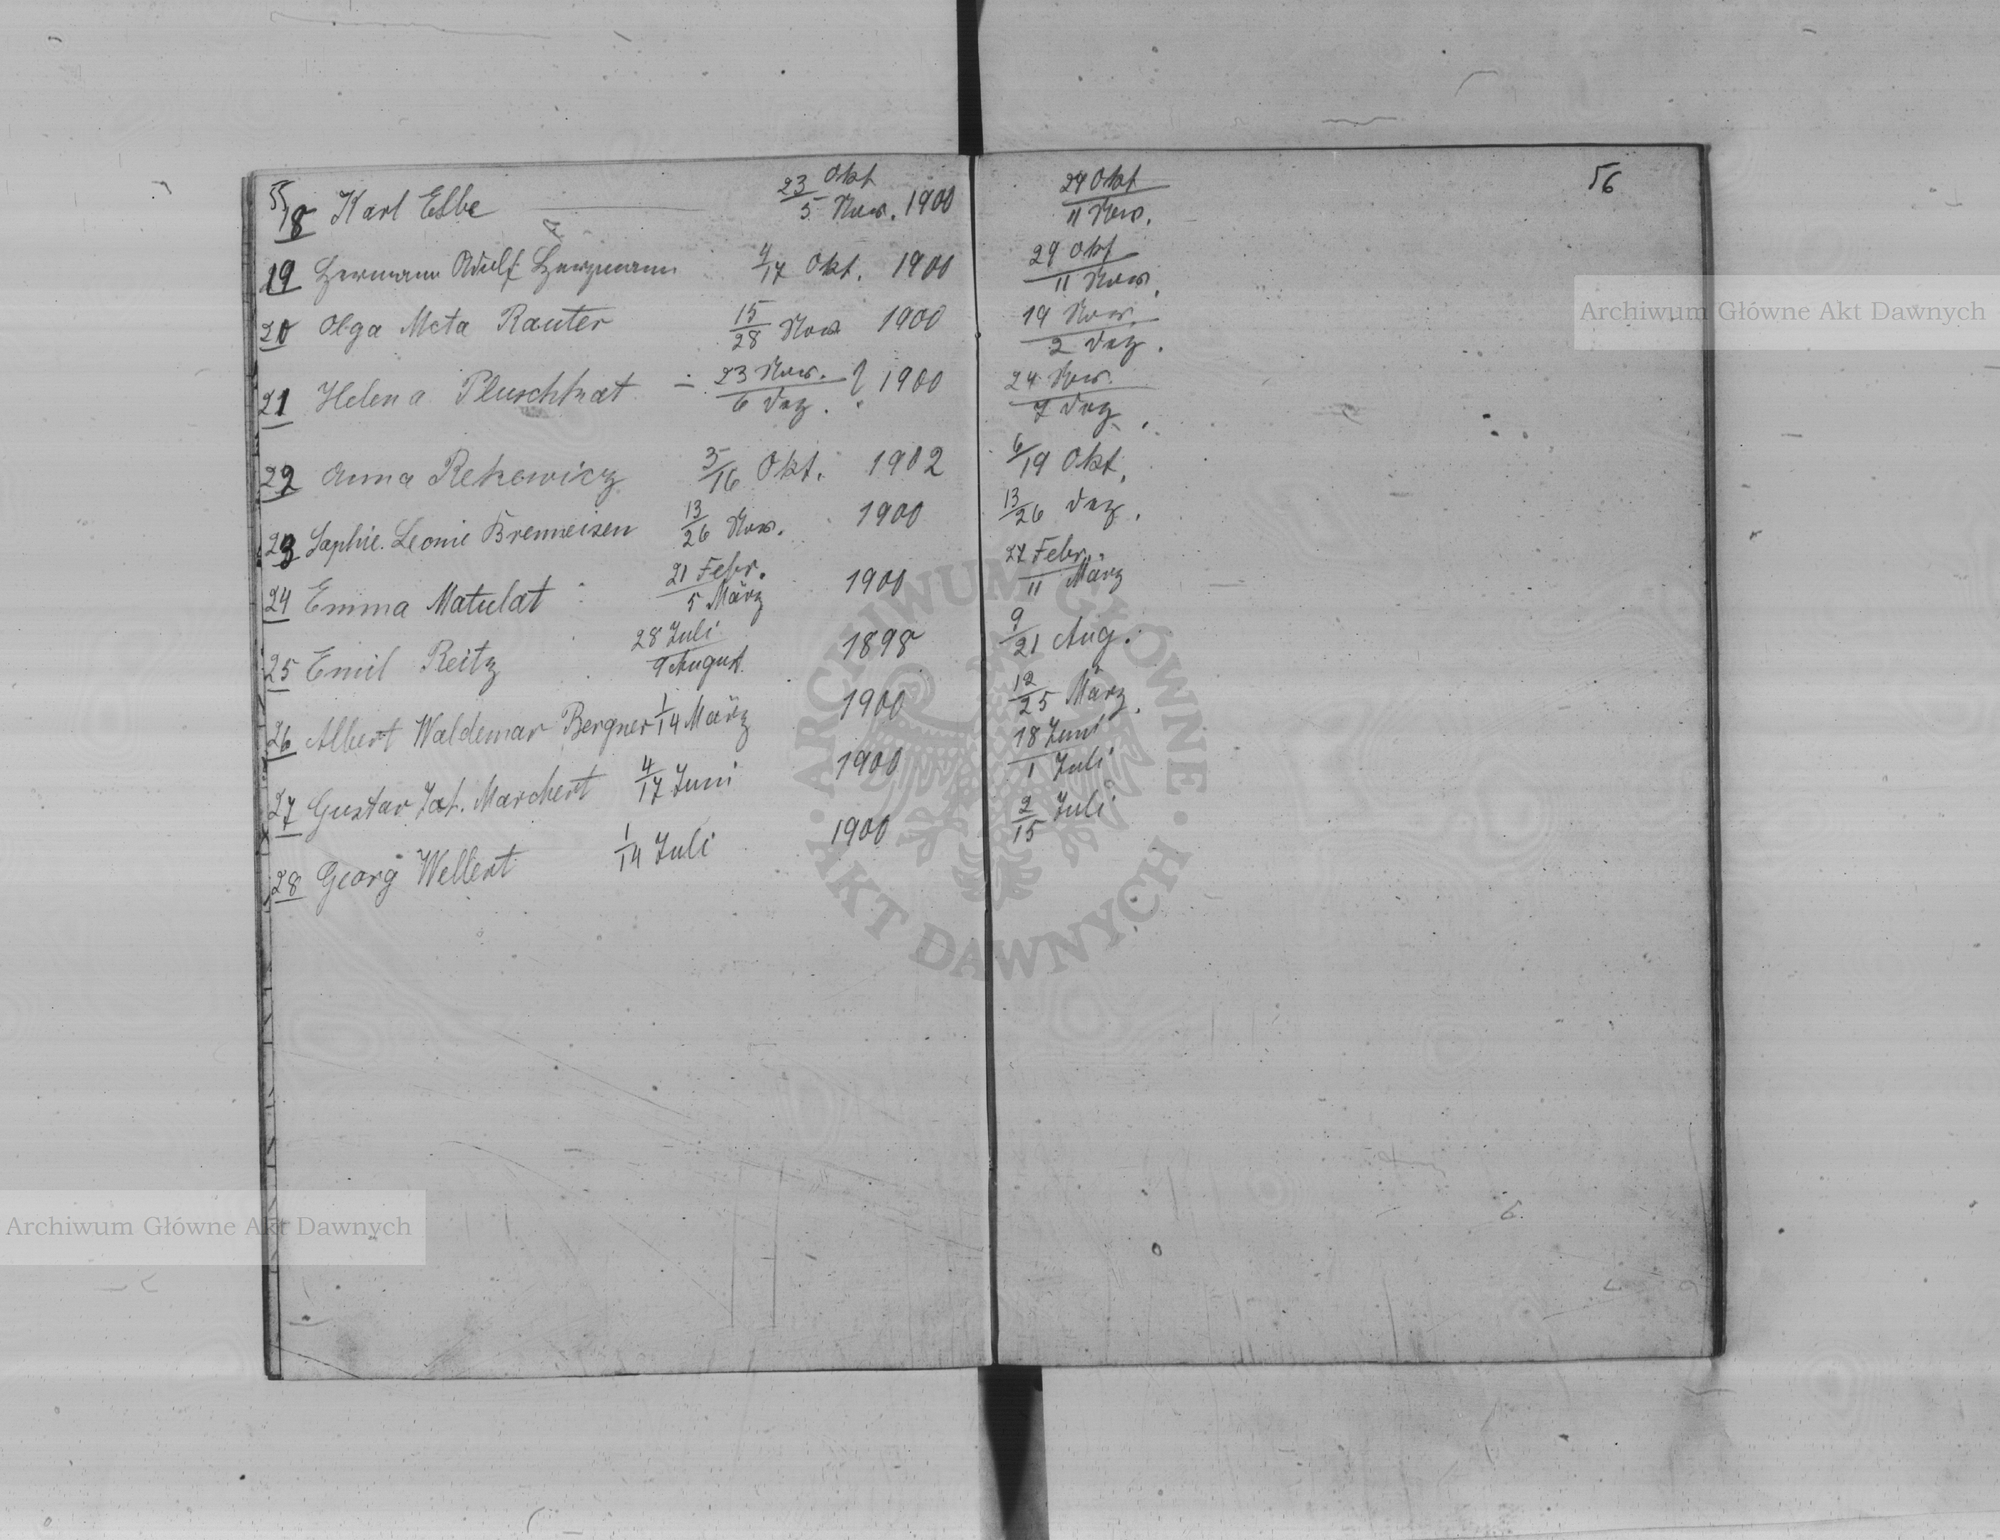 55 56
18 Karl Elbe 23 Okt / 5 Nov. 1900 29 Okt / 11 Nov.
19 Hermann Adulf 4/17 Okt. 1900 29 Okt / 11 Nov.
20 Olga Meta Rauter 15/28 Nov 1900 19 Nov. / 2 Dez.
21 Helena Pluschkat 23 Nov. / 6 Dez. 1900 24 Nov. / 7 Dez.
22 Anna Rekowicz 3/16 Okt. 1902 6/19 Okt.
23 Sophie Leonie Brenneisen 13/26 Nov. 1900 13/26 Dez.
24 Emma Matulat 21 Febr. / 5 März 1900 27 Febr. / 11 März
25 Emil Reitz 28 Juli / 9 August 1898 9/21 Aug.
26 Albert Waldemar Bergner 1/14 März 1900 12/25 März
27 Gustav Marchert 4/17 Juni 1900 18 Juni / 1 Juli
28 Georg Wellert 1/14 Juli 1900 2/15 Juli
Archiwum Główne Akt Dawnych
ARCHIWUM GŁÓWNE · AKT DAWNYCH ·
Archiwum Główne Akt Dawnych